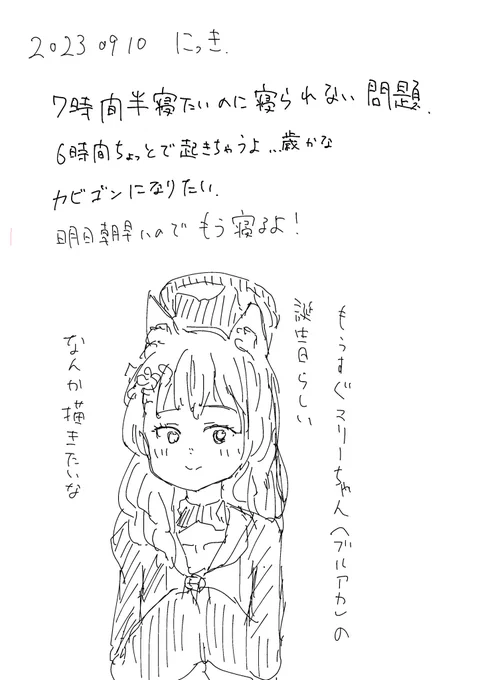 2023 09 10 にっき.
7時間半寝たいのに寝られない問題.
6時間ちょっとで起きちゃうよ…歳かな
カビゴンになりたい.
明日朝早いのでもう寝るよ!
もうすぐマリーちゃん(ブルアカ)の
誕生日らしい
なんか描きたいな